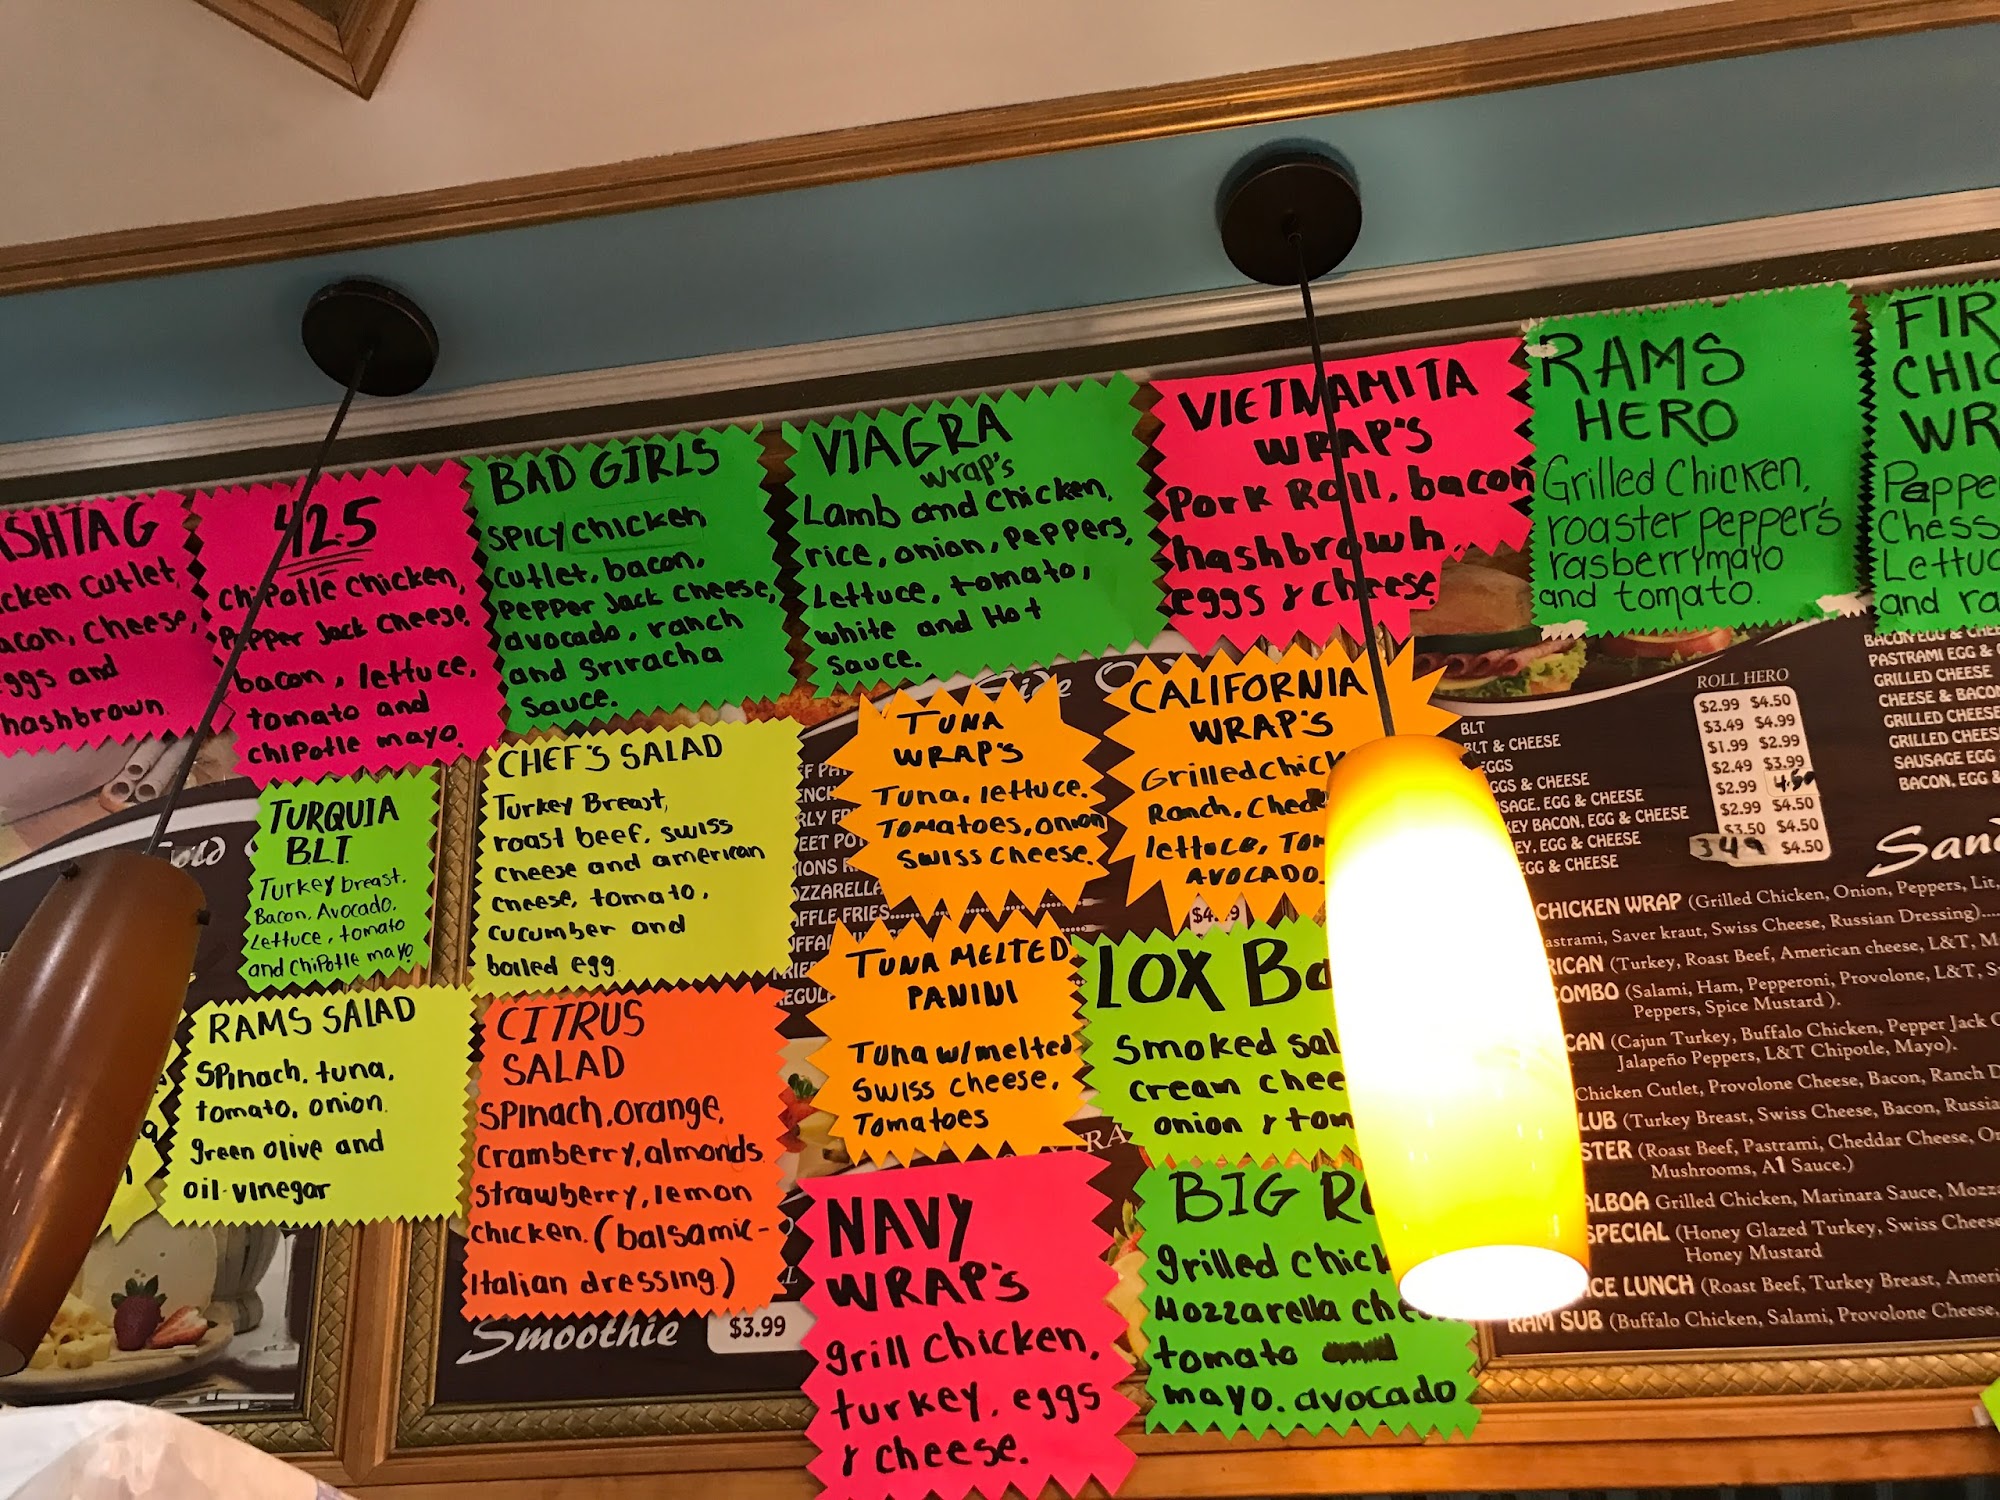 SHTAG
cken cutlet,
acon, cheese,
ggs and
hashbrown.
42.5
chipotle chicken,
Pepper Jack cheese,
bacon, lettuce,
tomato and
chipotle mayo.
BAD GIRLS
SPICY chicken
cutlet, bacon,
pepper Jack cheese,
avocado, ranch
and Sriracha
Sauce.
VIAGRA
wrap's
Lamb and chicken,
rice, onion, peppers,
Lettuce, tomato,
white and Hot
Sauce.
VIETNAMITA
WRAP'S
Pork Roll, bacon
hashbrowh
eggs & cheese
RAMS
HERO
Grilled Chicken,
roaster pepper's
rasberry mayo
and tomato.
FIR
CHIC
WR
Peppe
Chess
Lettuc
and ra
TURQUIA
BLT
Turkey breast.
Bacon, Avocado,
Lettuce, tomato
and chipotle mayo
CHEF'S SALAD
Turkey Breast,
roast beef, swiss
cheese and american
cheese, tomato,
cucumber and
boiled egg.
TUNA
WRAP'S
Tuna, lettuce.
Tomatoes, onion
swiss cheese.
CALIFORNIA
WRAP'S
Grilled chick
Ranch, Chedd
lettuce, Tom
AVOCADO.
RAMS SALAD
Spinach, tuna,
tomato, onion.
green olive and
oil-vinegar
CITRUS
SALAD
Spinach, orange,
cramberry, almonds
strawberry, lemon
chicken. (balsamic-
Italian dressing.)
TUNA MELTED
PANINI
Tuna w/melted
Swiss cheese,
Tomatoes
LOX Ba
Smoked sal
cream chee
onion & tom
NAVY
WRAP'S
grill chicken,
turkey, eggs
& cheese.
BIG RO
grilled chick
Mozzarella che
tomato
mayo. avocado
Smoothie $3.99
ROLL HERO
BLT $2.99 $4.50
BLT & CHEESE $3.49 $4.99
EGGS $1.99 $2.99
GGS & CHEESE $2.49 $3.99
SAGE, EGG & CHEESE $2.99 4.50
KEY BACON, EGG & CHEESE $2.99 $4.50
EY, EGG & CHEESE $3.50 $4.50
EGG & CHEESE 349 $4.50
BACON EGG & CHEE
PASTRAMI EGG & C
GRILLED CHEESE
CHEESE & BACON
GRILLED CHEESE
GRILLED CHEESE
SAUSAGE EGG
BACON, EGG &
Sand
CHICKEN WRAP (Grilled Chicken, Onion, Peppers, Lit,
astrami, Saver kraut, Swiss Cheese, Russian Dressing)....
RICAN (Turkey, Roast Beef, American cheese, L&T, M
COMBO (Salami, Ham, Pepperoni, Provolone, L&T, S
Peppers, Spice Mustard ).
CAN (Cajun Turkey, Buffalo Chicken, Pepper Jack C
Jalapeño Peppers, L&T Chipotle, Mayo).
Chicken Cutlet, Provolone Cheese, Bacon, Ranch D
LUB (Turkey Breast, Swiss Cheese, Bacon, Russia
STER (Roast Beef, Pastrami, Cheddar Cheese, On
Mushrooms, A1 Sauce.)
ALBOA Grilled Chicken, Marinara Sauce, Mozza
SPECIAL (Honey Glazed Turkey, Swiss Cheese
Honey Mustard
ICE LUNCH (Roast Beef, Turkey Breast, Ameri
RAM SUB (Buffalo Chicken, Salami, Provolone Cheese,